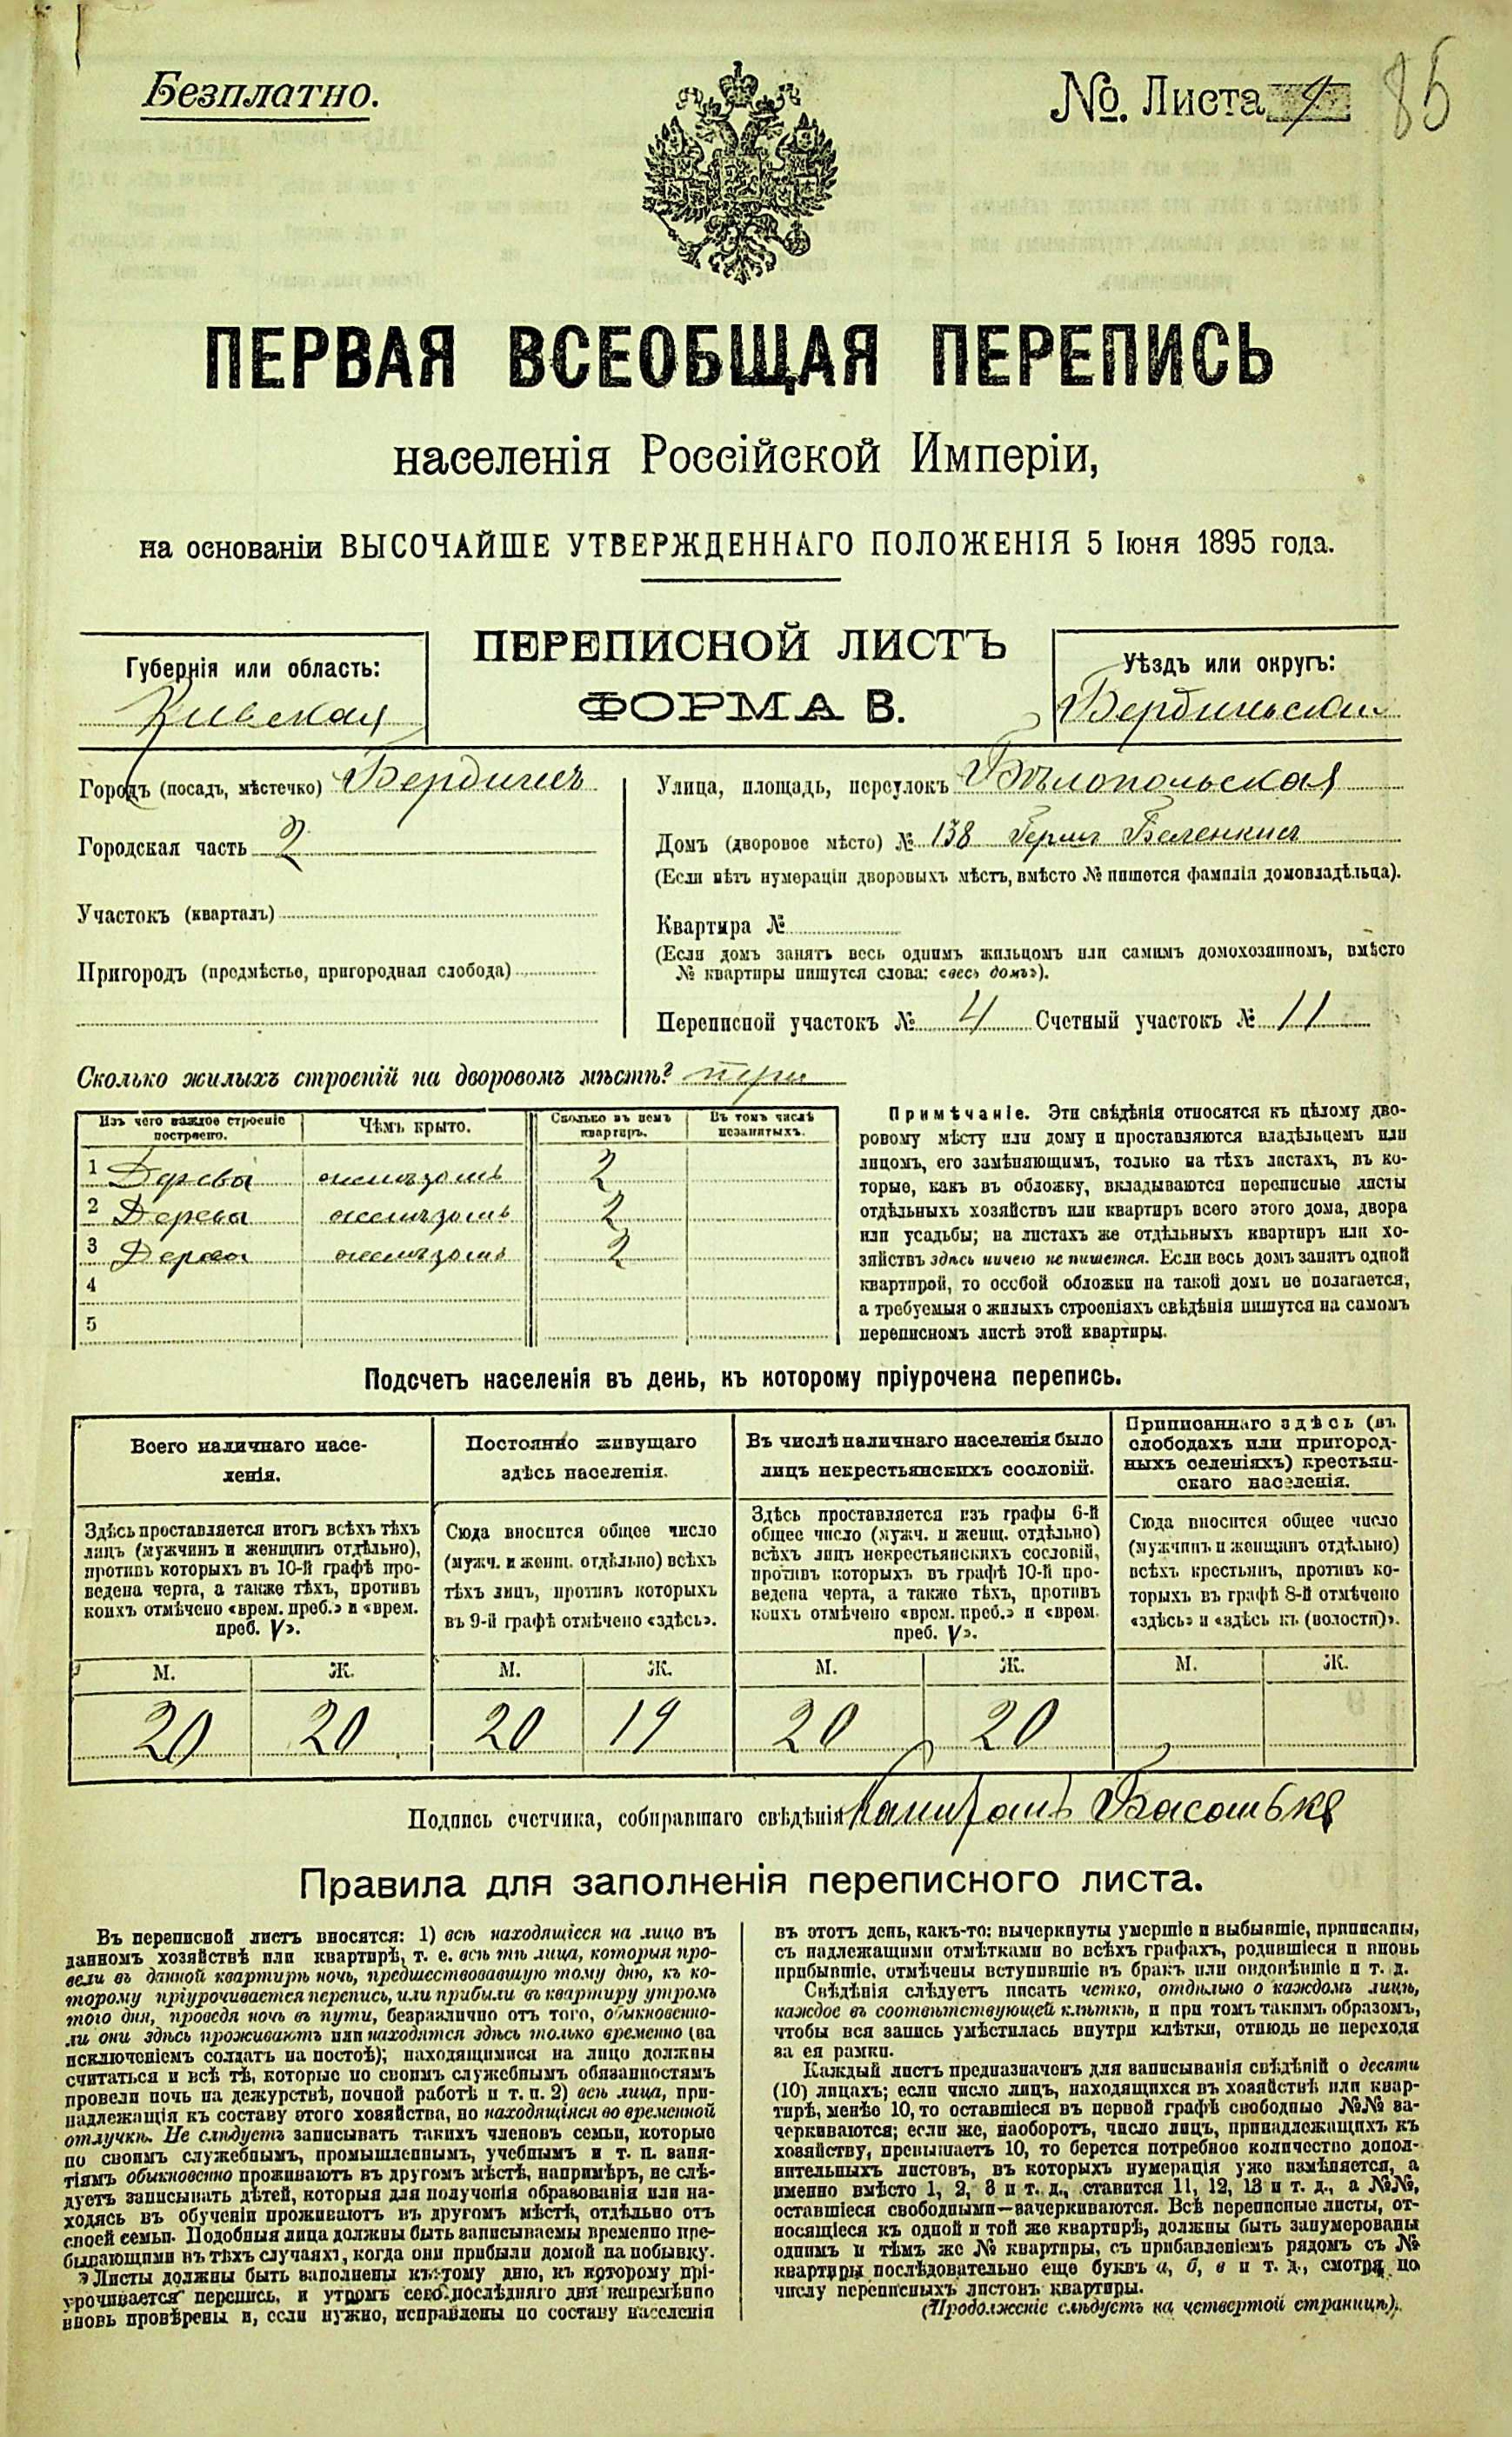 Безплатно.
№. Листа
85
ПЕРВАЯ ВСЕОБЩАЯ ПЕРЕПИСЬ
населенія Россійской Имперіи,
на основаніи ВЫСОЧАЙШЕ УТВЕРЖДЕННАГО ПОЛОЖЕНІЯ 5 Іюня 1895 года.
Губернія или область:
Киевская
ПЕРЕПИСНОЙ ЛИСТЪ
ФОРМА В.
Уѣздъ или округъ:
Городъ (посадъ, мѣстечко) Бердичевъ
Городская часть 2
Участокъ (кварталъ)
Пригородъ (предмѣстье, пригородная слобода)
Улица, площадь, переулокъ Бѣлопольская
Домъ (дворовое мѣсто) № 138
(Если нѣтъ нумераціи дворовыхъ мѣстъ, вмѣсто № пишется фамилія домовладѣльца).
Квартира №
(Если домъ занятъ весь однимъ жильцомъ или самимъ домохозяиномъ, вмѣсто
№ квартиры пишутся слова: «весь домъ»).
Переписной участокъ № 4 Счетный участокъ № 11
Сколько жилыхъ строеній на дворовомъ мѣстѣ? три
Изъ чего каждое строеніе построено.
Чѣмъ крыто.
Сколько въ немъ квартиръ.
Въ томъ числѣ незанятыхъ.
1 Дерева желѣзомъ 2
2 Дерева желѣзомъ 2
3 Дерева желѣзомъ 2
4
5
Примѣчаніе. Эти свѣдѣнія относятся къ цѣлому дво-
ровому мѣсту или дому и проставляются владѣльцемъ или
лицомъ, его замѣняющимъ, только на тѣхъ листахъ, въ ко-
торые, какъ въ обложку, вкладываются переписные листы
отдѣльныхъ хозяйствъ или квартиръ всего этого дома, двора
или усадьбы; на листахъ же отдѣльныхъ квартиръ или хо-
зяйствъ здѣсь ничего не пишется. Если весь домъ занятъ одной
квартирой, то особой обложки на такой домъ не полагается,
а требуемыя о жилыхъ строеніяхъ свѣдѣнія пишутся на самомъ
переписномъ листѣ этой квартиры.
Подсчетъ населенія въ день, къ которому пріурочена перепись.
Всего наличнаго насе-
ленія.
Постоянно живущаго
здѣсь населенія.
Въ числѣ наличнаго населенія было
лицъ некрестьянскихъ сословій.
Приписаннаго здѣсь (въ
слободахъ или пригород-
ныхъ селеніяхъ) крестьян-
скаго населенія.
Здѣсь проставляется итогъ всѣхъ тѣхъ
лицъ (мужчинъ и женщинъ отдѣльно),
противъ которыхъ въ 10-й графѣ про-
ведена черта, а также тѣхъ, противъ
коихъ отмѣчено «врем. преб.» и «врем.
преб. V».
Сюда вносится общее число
(мужч. и женщ. отдѣльно) всѣхъ
тѣхъ лицъ, противъ которыхъ
въ 9-й графѣ отмѣчено «здѣсь».
Здѣсь проставляется изъ графы 6-й
общее число (мужч. и женщ. отдѣльно)
всѣхъ лицъ некрестьянскихъ сословій,
противъ которыхъ въ графѣ 10-й про-
ведена черта, а также тѣхъ, противъ
коихъ отмѣчено «врем. преб.» и «врем.
преб. V».
Сюда вносится общее число
(мужчинъ и женщинъ отдѣльно)
всѣхъ крестьянъ, противъ ко-
торыхъ въ графѣ 8-й отмѣчено
«здѣсь» и «здѣсь къ (волости)».
М. Ж. М. Ж. М. Ж. М. Ж.
20 20 20 19 20 20
Подпись счетчика, собиравшаго свѣдѣнія
Правила для заполненія переписного листа.
Въ переписной листъ вносятся: 1) всѣ находящіеся на лицо въ
данномъ хозяйствѣ или квартирѣ, т. е. всѣ тѣ лица, которыя про-
вели въ данной квартирѣ ночь, предшествовавшую тому дню, къ ко-
торому пріурочивается перепись, или прибыли въ квартиру утромъ
того дня, проведя ночь въ пути, безразлично отъ того, обыкновенно-
ли они здѣсь проживаютъ или находятся здѣсь только временно (за
исключеніемъ солдатъ на постоѣ); находящимися на лицо должны
считаться и всѣ тѣ, которые по своимъ служебнымъ обязанностямъ
провели ночь на дежурствѣ, ночной работѣ и т. п. 2) всѣ лица, при-
надлежащія къ составу этого хозяйства, но находящіяся во временной
отлучкѣ. Не слѣдуетъ записывать такихъ членовъ семьи, которые
по своимъ служебнымъ, промышленнымъ, учебнымъ и т. п. заня-
тіямъ обыкновенно проживаютъ въ другомъ мѣстѣ, напримѣръ, не слѣ-
дуетъ записывать дѣтей, которыя для полученія образованія или на-
ходясь въ обученіи проживаютъ въ другомъ мѣстѣ, отдѣльно отъ
своей семьи. Подобныя лица должны быть записываемы временно пре-
бывающими въ тѣхъ случаяхъ, когда они прибыли домой на побывку.
Листы должны быть заполнены къ тому дню, къ которому прі-
урочивается перепись, и утромъ сего послѣдняго дня непремѣнно
вновь провѣрены и, если нужно, исправлены по составу населенія
въ этотъ день, какъ-то: вычеркнуты умершіе и выбывшіе, приписаны,
съ надлежащими отмѣтками во всѣхъ графахъ, родившіеся и вновь
прибывшіе, отмѣчены вступившіе въ бракъ или овдовѣвшіе и т. д.
Свѣдѣнія слѣдуетъ писать четко, отдѣльно о каждомъ лицѣ,
каждое въ соотвѣтствующей клѣткѣ, и при томъ такимъ образомъ,
чтобы вся запись умѣстилась внутри клѣтки, отнюдь не переходя
за ея рамки.
Каждый листъ предназначенъ для записыванія свѣдѣній о десяти
(10) лицахъ; если число лицъ, находящихся въ хозяйствѣ или квар-
тирѣ, менѣе 10, то оставшіеся въ первой графѣ свободные №№ за-
черкиваются; если же, наоборотъ, число лицъ, принадлежащихъ къ
хозяйству, превышаетъ 10, то берется потребное количество допол-
нительныхъ листовъ, въ которыхъ нумерація уже измѣняется, а
именно вмѣсто 1, 2, 3 и т. д., ставится 11, 12, 13 и т. д., а №№,
оставшіеся свободными—зачеркиваются. Всѣ переписные листы, от-
носящіеся къ одной и той же квартирѣ, должны быть занумерованы
однимъ и тѣмъ же № квартиры, съ прибавленіемъ рядомъ съ №
квартиры послѣдовательно еще буквъ а, б, в и т. д., смотря по
числу переписныхъ листовъ квартиры.
(Продолженіе слѣдуетъ на четвертой страницѣ).